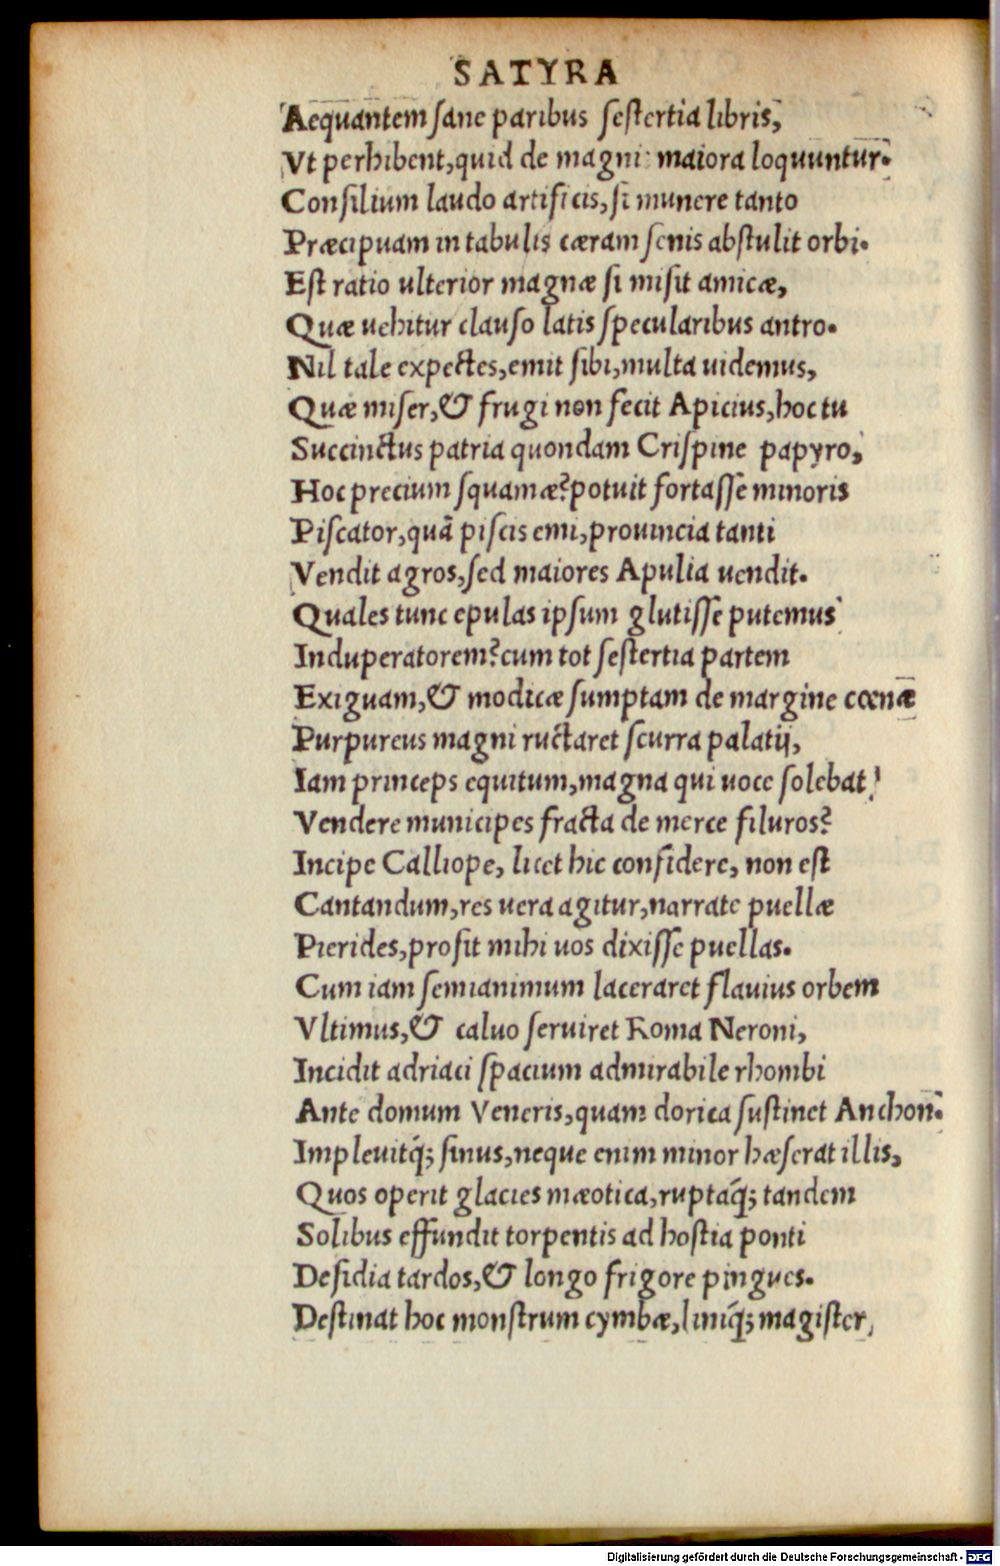 SATYRA
Aequantem sane paribus sestertia libris,
Vt perhibent, quid de magni maiora loquuntur.
Consilium laudo artificis, si munere tanto
Præcipuam in tabulis cæram senis abstulit orbi.
Est ratio ulterior magnæ si misit amicæ,
Quæ uehitur clauso latis specularibus antro.
Nil tale expectes, emit sibi, multa uidemus,
Quæ miser, & frugi non fecit Apicius, hoc tu
Succinctus patria quondam Crispine papyro,
Hoc precium squamæ? potuit fortasse minoris
Piscator, quã piscis emi, prouincia tanti
Vendit agros, sed maiores Apulia uendit.
Quales tunc epulas ipsum glutisse putemus
Induperatorem? cum tot sestertia partem
Exiguam, & modicæ sumptam de margine cœnæ
Purpureus magni ructaret scurra palatij,
Iam princeps equitum, magna qui uoce solebat
Vendere municipes fracta de merce siluros?
Incipe Calliope, licet hic considere, non est
Cantandum, res uera agitur, narrate puellæ
Pierides, prosit mihi uos dixisse puellas.
Cum iam semianimum laceraret flauius orbem
Vltimus, & caluo seruiret Roma Neroni,
Incidit adriaci spacium admirabile rhombi
Ante domum Veneris, quam dorica sustinet Anchon.
Impleuitq́; sinus, neque enim minor hæserat illis,
Quos operit glacies mæotica, ruptaq́; tandem
Solibus effundit torpentis ad hostia ponti
Desidia tardos, & longo frigore pingues.
Destinat hoc monstrum cymbæ, liniq́; magister,
Digitalisierung gefördert durch die Deutsche Forschungsgemeinschaft - DFG